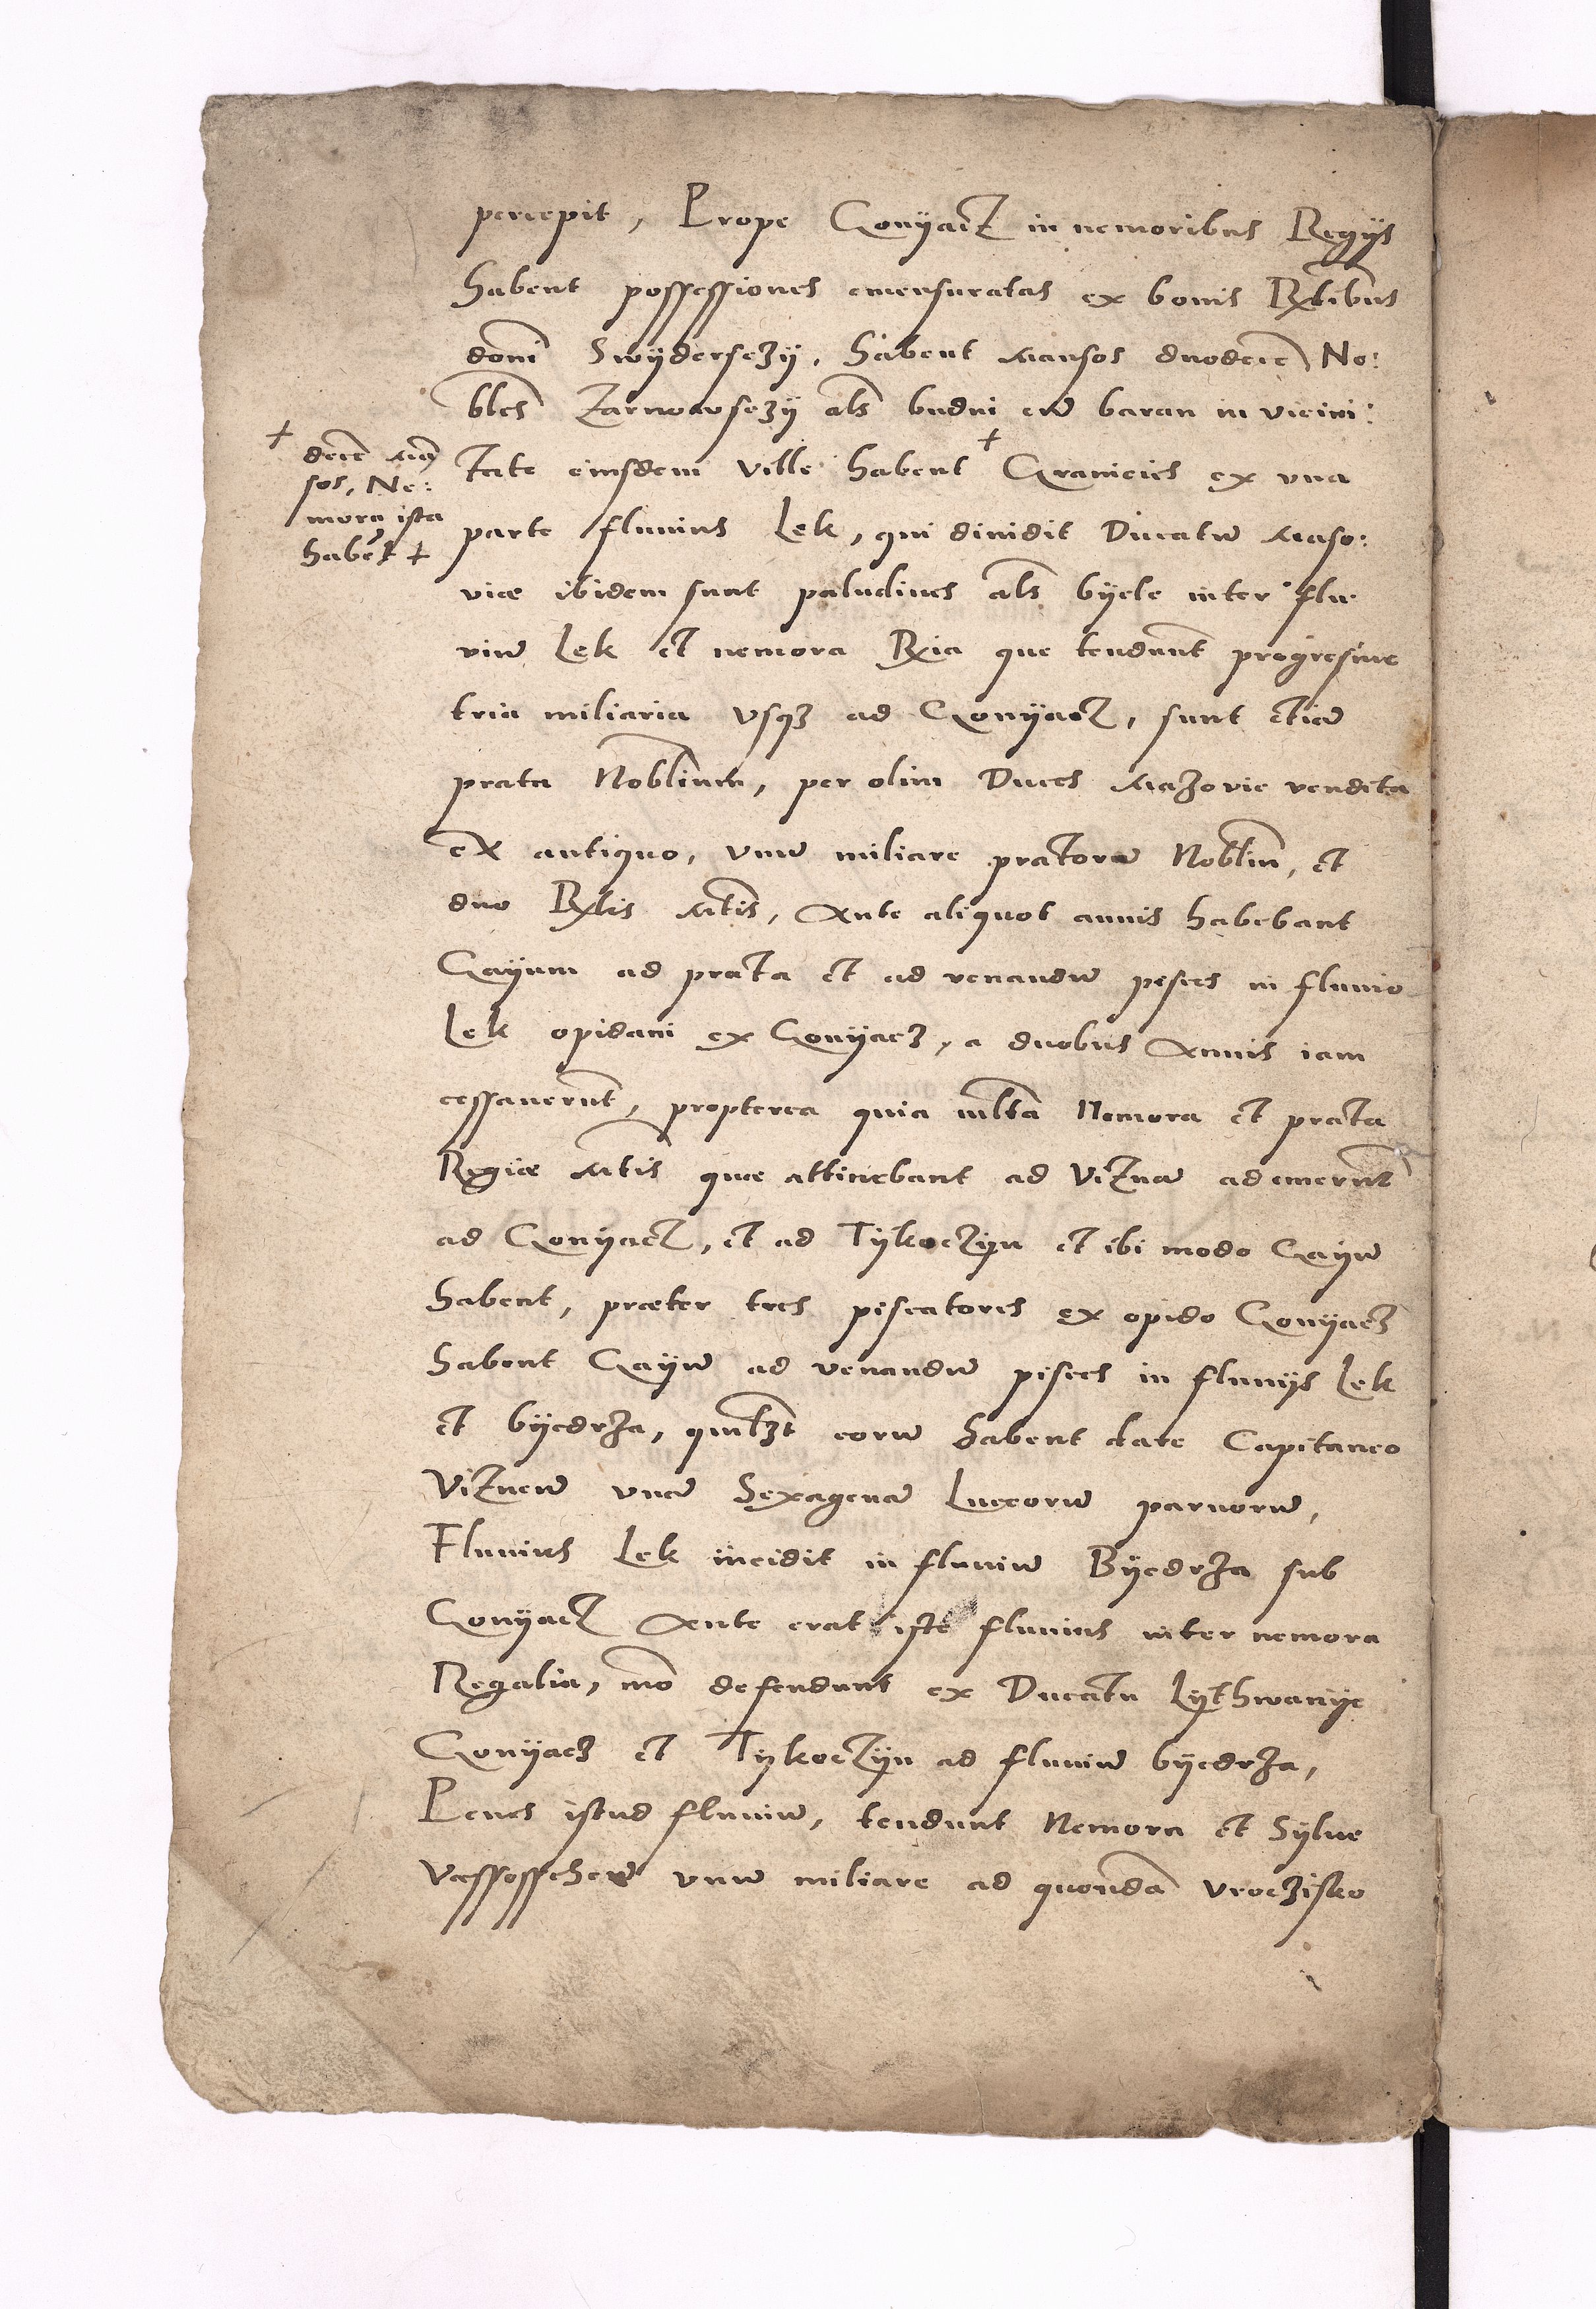 percepit, Prope Gonyacz in nemoribus Regys
habent possessiones emensuratas ex bonis Rxlibus
domi Swydersczy, habent Mansos duodecē No:
bles Zarnowsczy als budni cū baran in vicini:
tate eiusdem ville habent + Granicies ex vna
+ decē Mā
sos, Ne:
mora ista
habēt +
parte fluuius Lek, qui diuidit Ducatū Maso:
viæ ibidem sunt paludines als byele inter flu
viū Lek et nemora Rxia que tendunt progresiue
tria miliaria vsqȝ ad Gonyacz, sunt etiā
prata Noblium, per olim Duces Mazovie vendita
ex antiquo, vnū miliare pratorū Nobliū, et
duo Rxlis Mtis, Ante aliquot annis habebant
Gayum ad prata et ad venandū pisces in fluuio
Lek opidani ex Gonyacz, a duobus Annis iam
cessauerūt, propterea quia mlta Nemora et prata
Regiæ Mtis quæ attinebant ad Viznā ademerūt
ad Gonyacz, et ad Tykoczyn et ibi modo Gayū
habent, præter tres piscatores ex opido Gonyacz
habent Gayū ad venandū pisces in fluuys Lek
et byedrza, quilȝt eorū habent dare Capitaneo
Viznen̄ vnā Sexagenā Luceorū paruorū,
Fluuius Lek incidit in fluuiū Byedrza sub
Gonyacz Ante erat iste fluuius inter nemora
Regalia, mō defendunt ex Ducatu Lythwanye
Gonyacz et Tykoczyn ad fluuiū byedrza,
Penes istud fluuiū, tendunt Nemora et Syluæ
vnū miliare ad quondā vroczisko